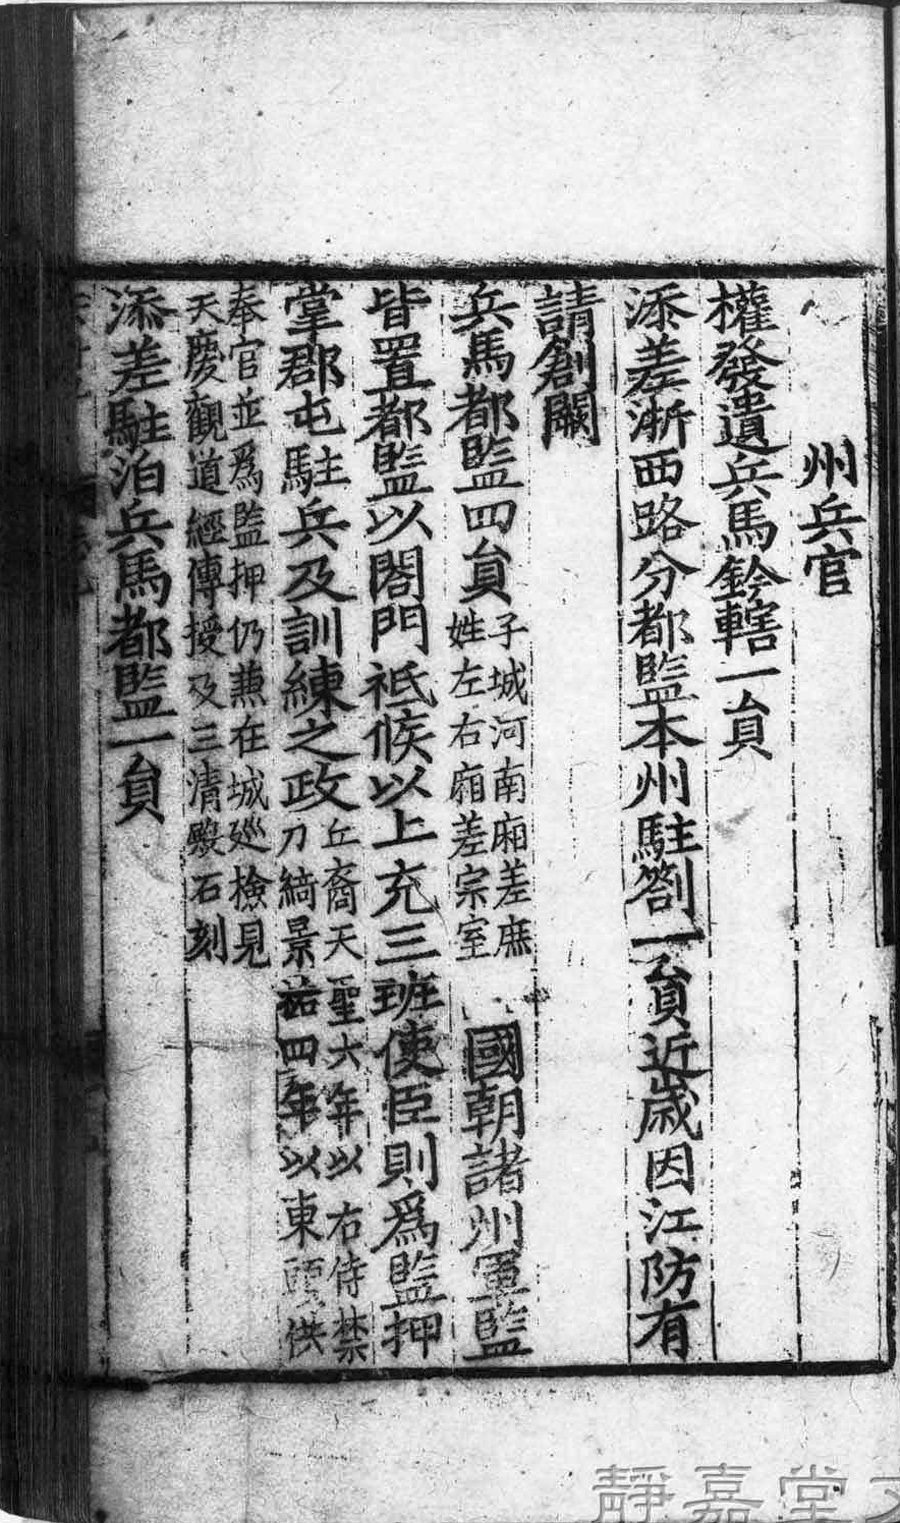 州兵官
權發遣兵馬鈐轄一員
添差浙西路分都監本州駐劄一員近歲因江防有
請創闕
兵馬都監四員子城河南廂差庶姓左右廂差宗室國朝諸州軍監
皆置都監以閤門祗候以上充三班使臣則爲監押
掌郡屯駐兵及訓練之政丘裔天聖六年以右侍禁刀綺景祐四年以東頭供
奉官並爲監押仍兼在城廵檢見天慶觀道經傳授及三清殿石刻
添差駐泊兵馬都監一員
靜嘉堂文